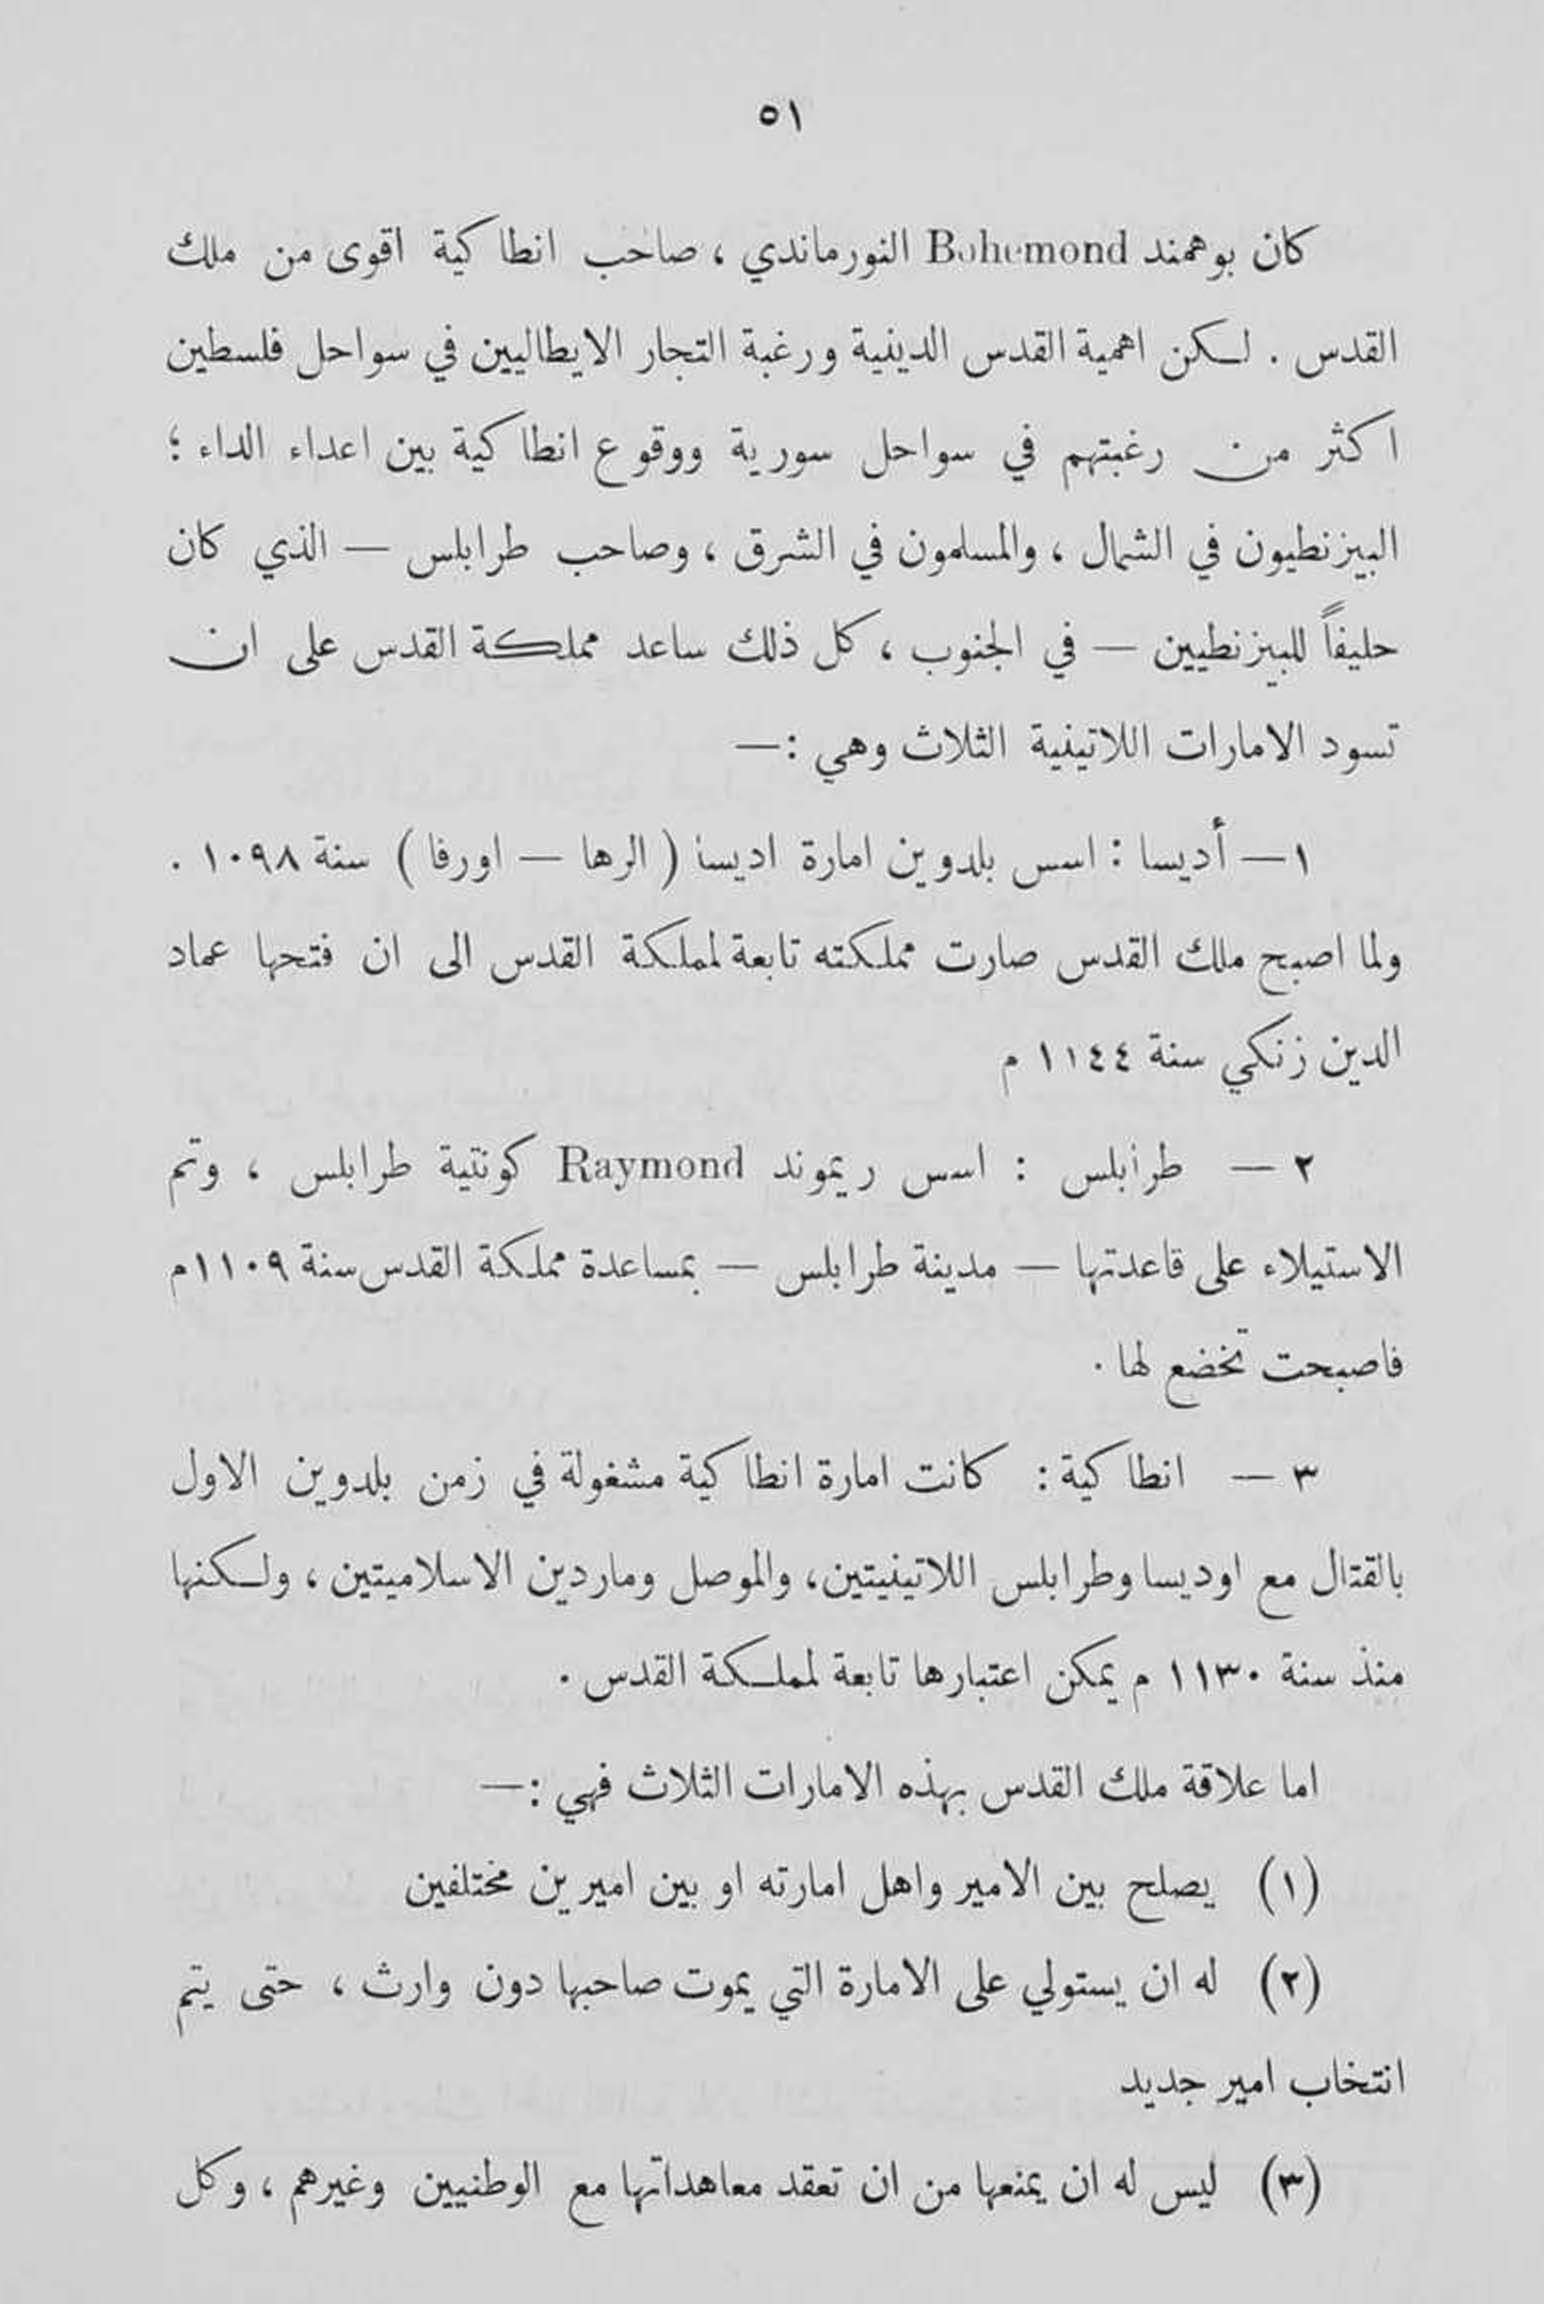 ٥١
كان بوهمند Bohemond النورماندي ، صاحب انطاكية اقوى من ملك
القدس . لكن اهمية القدس الدينية ورغبة التجار الايطاليين في سواحل فلسطين
اكثر من رغبتهم في سواحل سورية ووقوع انطاكية بين اعداء الداء ؛
البيزنطيون في الشمال ، والمسلمون في الشرق ، وصاحب طرابلس — الذي كان
حليفاً للبيزنطيين — في الجنوب ، كل ذلك ساعد مملكة القدس على ان
تسود الامارات اللاتينية الثلاث وهي :—
١— أديسا : اسس بلدوين امارة اديسا ( الرها — اورفا ) سنة ١٠٩٨ .
ولما اصبح ملك القدس صارت مملكته تابعة لمملكة القدس الى ان فتحها عماد
الدين زنكي سنة ١١٤٤ م
٢ — طرابلس : اسس ريموند Raymond كونتية طرابلس ، وتم
الاستيلاء على قاعدتها — مدينة طرابلس — بمساعدة مملكة القدس سنة ١١٠٩م
فاصبحت تخضع لها .
٣ — انطاكية : كانت امارة انطاكية مشغولة في زمن بلدوين الاول
بالقتال مع اوديسا وطرابلس اللاتينيتين، والموصل وماردين الاسلاميتين ، ولكنها
منذ سنة ١١٣٠ م يمكن اعتبارها تابعة لمملكة القدس .
اما علاقة ملك القدس بهذه الامارات الثلاث فهي :—
(١) يصلح بين الامير واهل امارته او بين اميرين مختلفين
(٢) له ان يستولي على الامارة التي يموت صاحبها دون وارث ، حتى يتم
انتخاب امير جديد
(٣) ليس له ان يمنعها من ان تعقد معاهداتها مع الوطنيين وغيرهم ، وكل